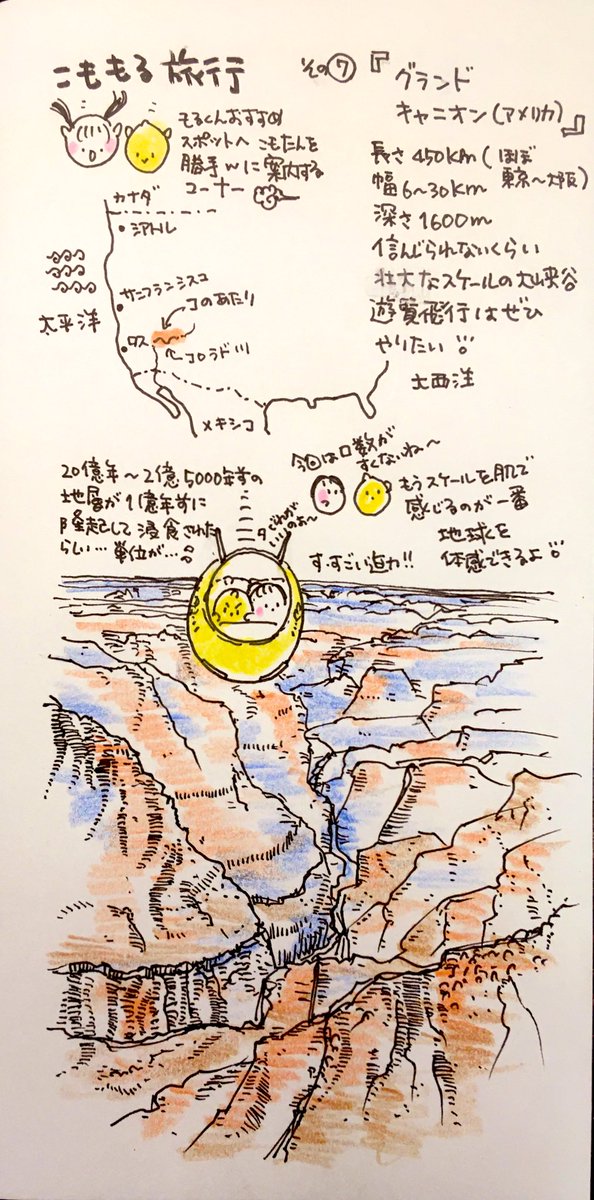 こももる旅行 その⑦『グランド
キャニオン(アメリカ)』
もるくんおすすめ
スポットへこもたんを
勝手wに案内する
コーナー
長さ450km(ほぼ
東京〜大阪)
幅6〜30km
深さ1600m
信じられないくらい
壮大なスケールの大峡谷
遊覧飛行はぜひ
やりたい
カナダ
シアトル
サンフランシスコ
このあたり
太平洋
ロス
コロラド川
大西洋
メキシコ
20億年〜2億5000年前の
地層が1億年前に
隆起して浸食された
らしい…単位が…
今回は口数が
すくないね〜
もうスケールを肌で
感じるのが一番
地球を
体感できるよ
それが
いいのよ〜
す・すごい迫力!!